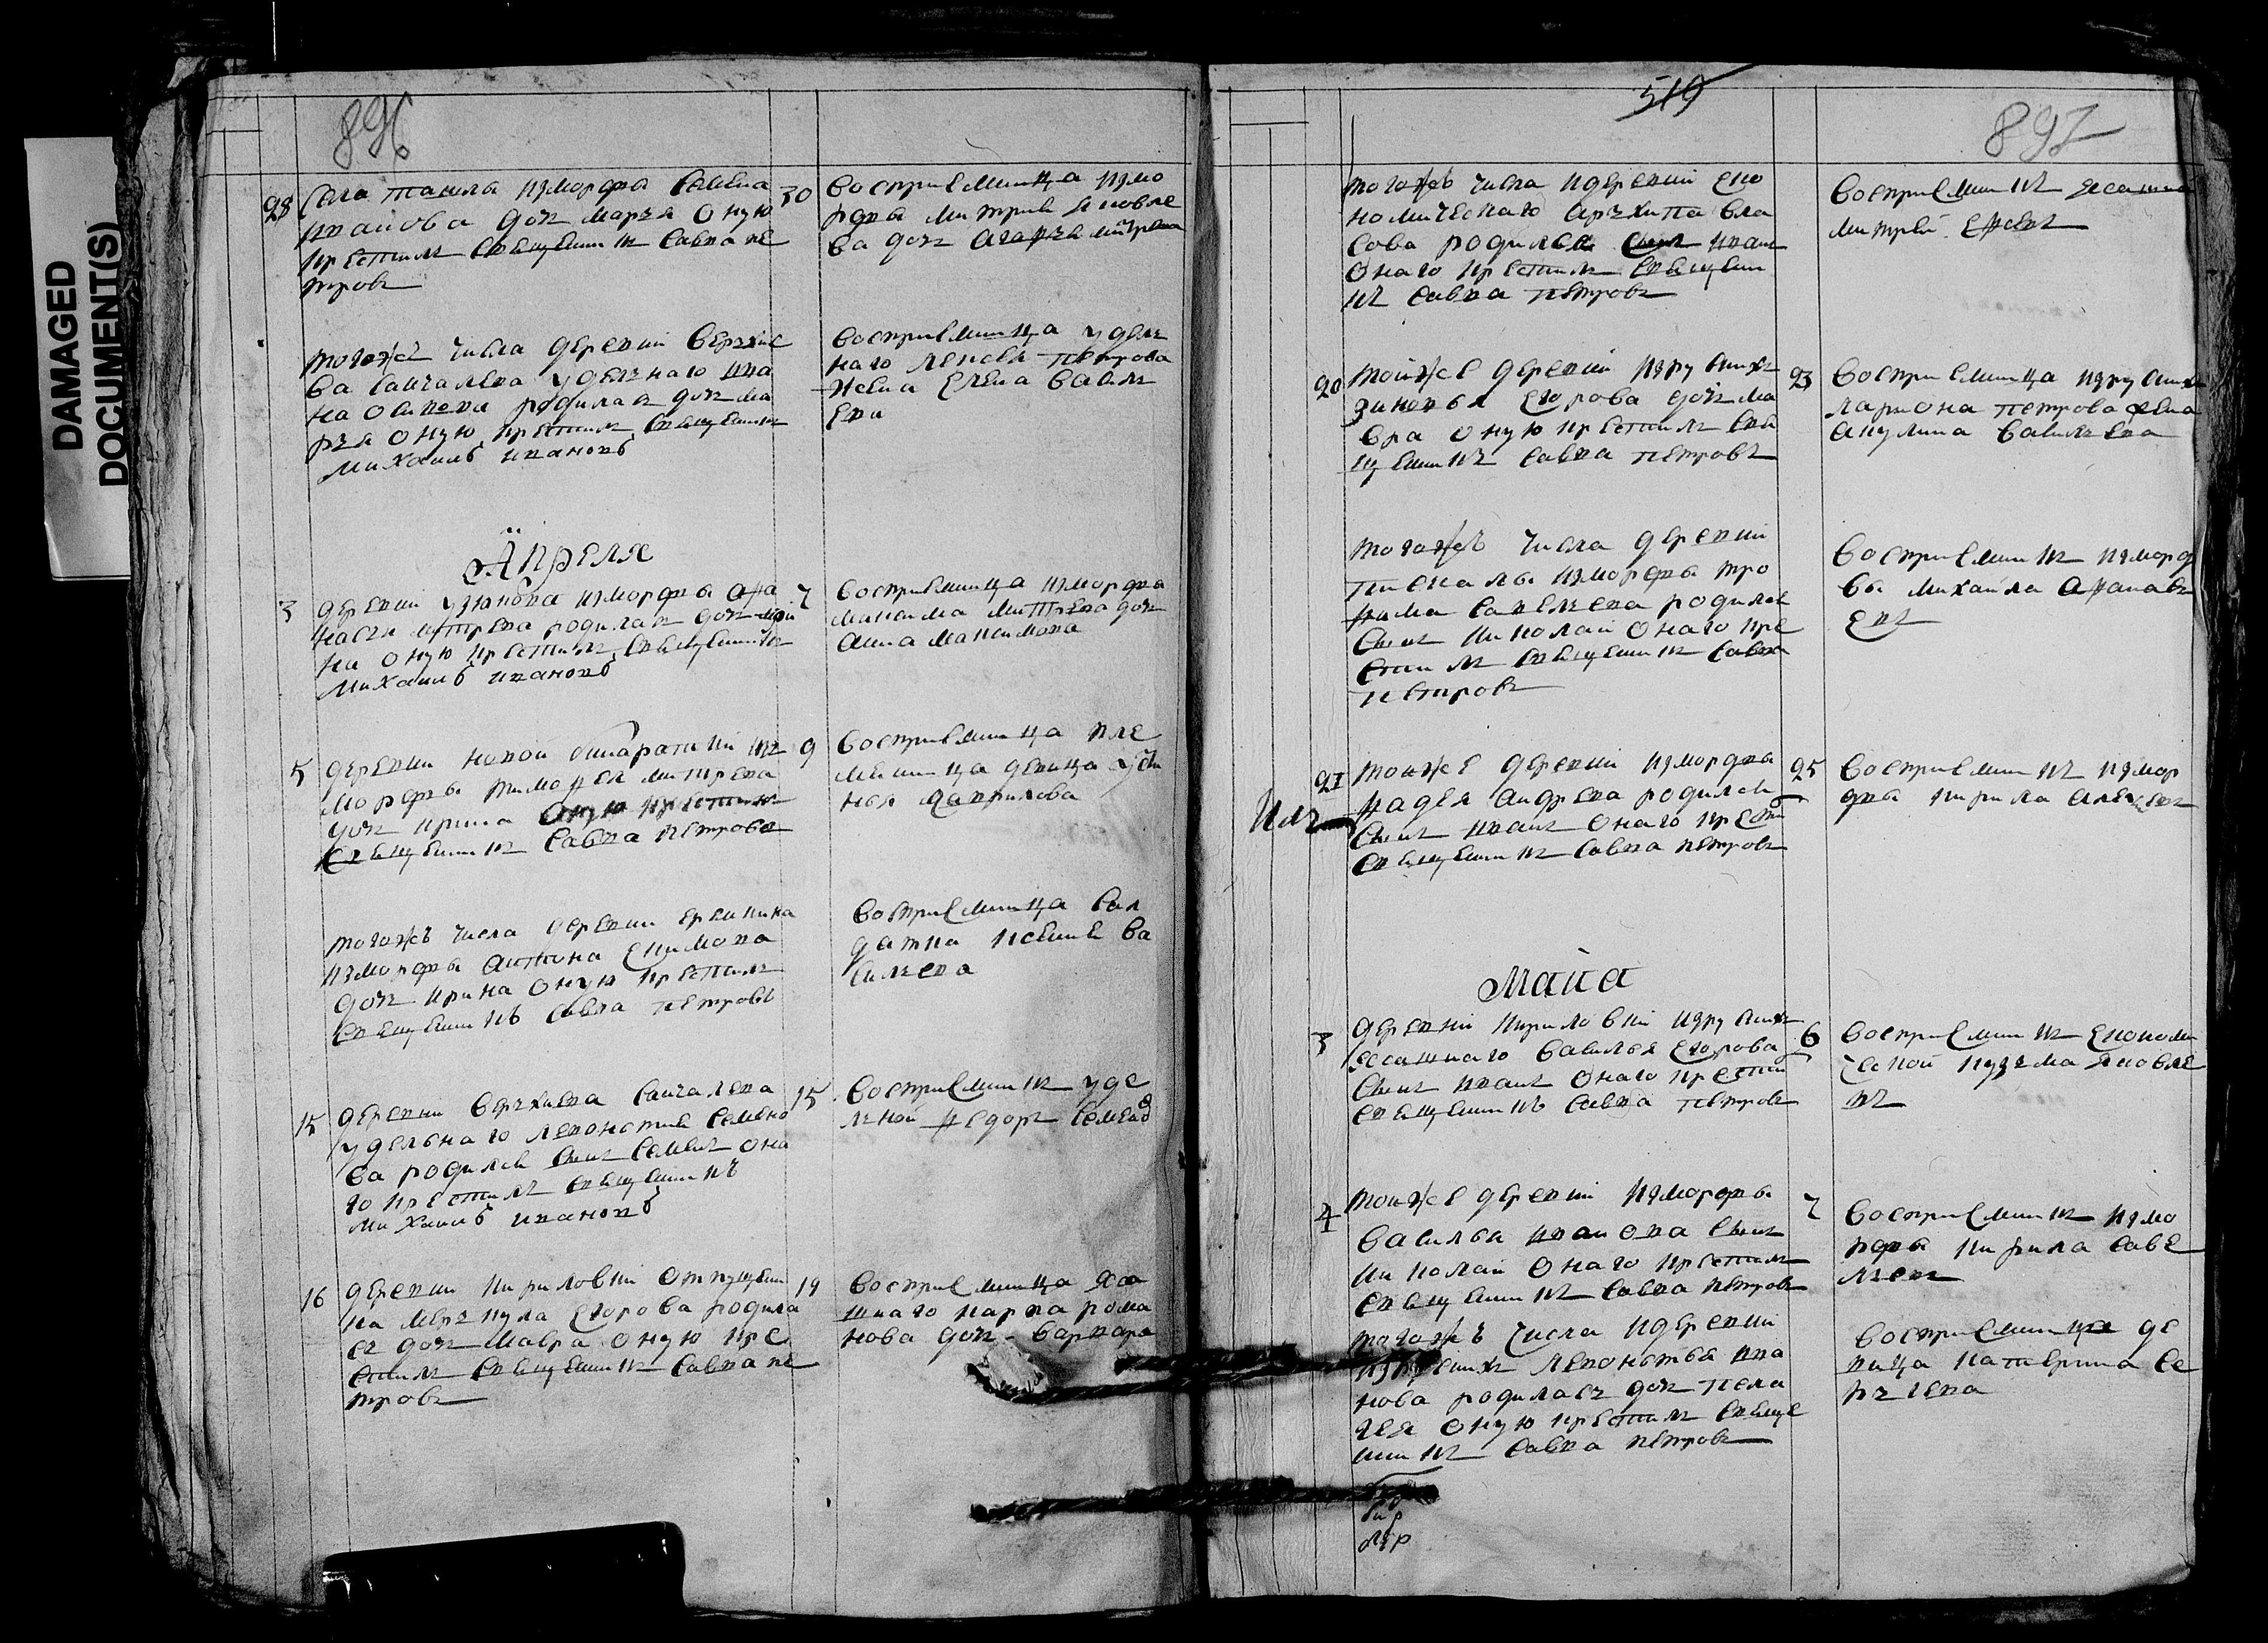 DAMAGED
DOCUMENT(S)
896
28 Села ташлы измордвы Семена 30
иванова дочь марья оную
крестилъ священникъ Савва пе
тровъ
восприемница измо
рдвы митрия яковле
ва дочь
тогожъ числа деревни верхне
ва Санчалеева удельнаго ива
на осипова родилась дочь ма
рья оную крестилъ священникъ
михаилъ ивановъ
восприемница удель
наго петрова
жена елена василь
ева
Апреля
3 деревни узюкова измордвы афа 7
насья митрева родилась дочь
на оную крестилъ священникъ
михаилъ ивановъ
восприемница измордвы
максима митрева дочь
анна максимова
5 деревни новой бинаратки из 9
мордвы тимофея митрева
дочь ирина оную крестилъ
священникъ Савва петровъ
восприемница пле
мянница девица усти
нья гаврилова
тогожъ числа деревни еремкина
измордвы антона екимова
дочь ирина оную крестилъ
священникъ Савва петровъ
восприемница Сал
датка ксения ва
сильева
15 деревни верхнева Санчалеева 15
удельнаго леонтия Семено
ва родился Сынъ Семенъ она
го крестилъ священникъ
михаилъ ивановъ
восприемникъ уде
льной федоръ
16 деревни кириловки отпущен 19
на меркула егорова родила
сь дочь мавра оную кре
стилъ священникъ Савва пе
тровъ
восприемница яса
шнаго карпа рома
нова дочь варвара
519
897
тогожъ числа идеревни еко
номическаго архипа вла
сова родился Сынъ иванъ
онаго крестилъ Священни
къ Савва петровъ
восприемникъ ясашной
митрей
20 тойже деревни изрускихъ 23
зиновья егорова дочь ма
вра оную крестилъ Свя
щенникъ Савва петровъ
восприемница изруских
лариона петрова жена
акулина васильева
тогожъ числа деревни
пискалы измордвы тро
фима Савельева родился
Сынъ николай онаго кре
стилъ Священникъ Савва
петровъ
восприемникъ измород
вы михайла афанась
евъ
21 тойже деревни измордвы 25
фадея андрева родился
Сынъ иванъ онаго крестил
священникъ Савва петровъ
восприемникъ измор
двы кирила алексеев
Майа
3 деревни кириловки изруских 6
ясашнаго василья егорова
Сынъ иванъ онаго крестил
священникъ Савва петровъ
восприемникъ економи
ческой кузьма яковле
въ
4 тойже деревни измордвы 7
василья иванова Сынъ
николай онаго крестилъ
священникъ Савва петровъ
восприемникъ измо
рдвы кирила Саве
льевъ
тогожъ числа идеревни
изруских леонтья ива
нова родилась дочь пела
гея оную крестилъ Свяще
нникъ Савва петровъ
восприемница де
вица катерина Се
ргеева